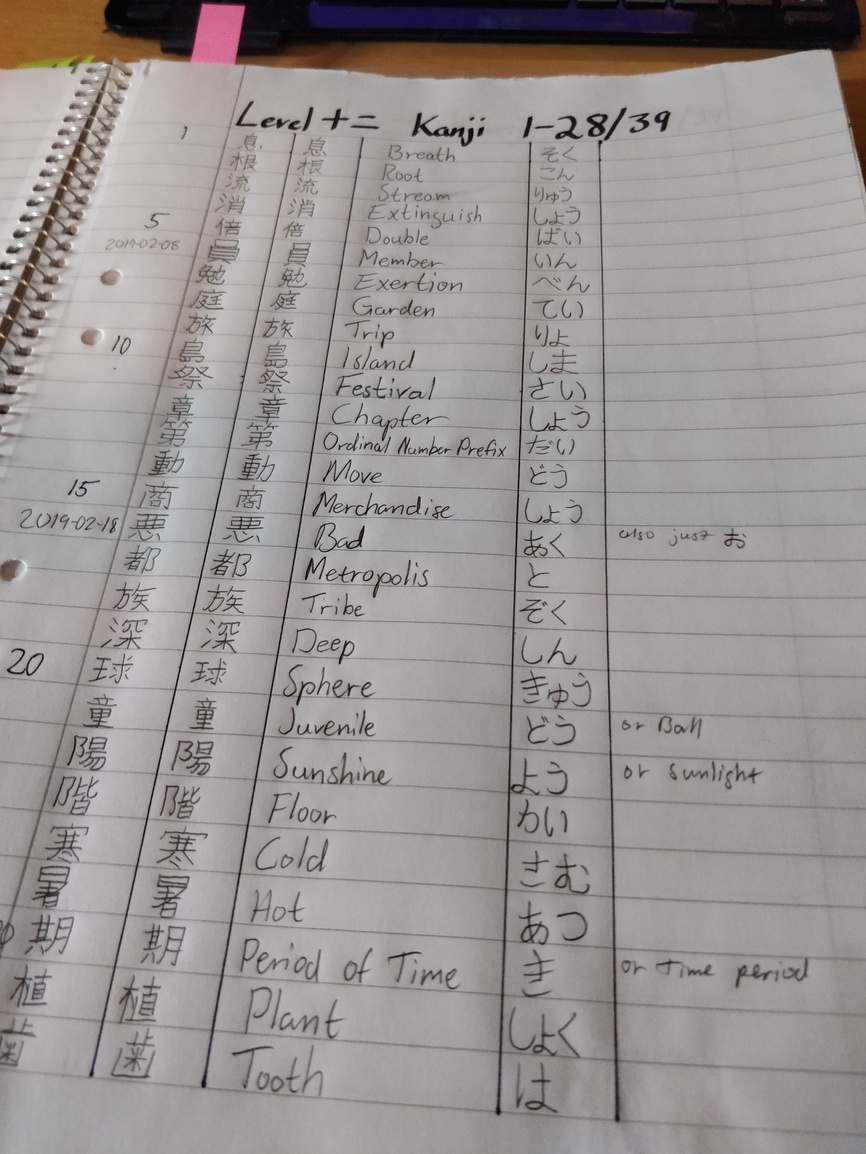 Level += Kanji 1-28/39
1 息 息 Breath そく
根 根 Root こん
流 流 Stream りゅう
消 消 Extinguish しょう
5 倍 倍 Double ばい
2019-02-08 員 員 Member いん
勉 勉 Exertion べん
庭 庭 Garden てい
旅 旅 Trip りょ
10 島 島 Island しま
祭 祭 Festival さい
章 章 Chapter しょう
第 第 Ordinal Number Prefix だい
動 動 Move どう
15 商 商 Merchandise しょう
2019-02-18 悪 悪 Bad あく also just お
都 都 Metropolis と
族 族 Tribe ぞく
深 深 Deep しん
20 球 球 Sphere きゅう
童 童 Juvenile どう or Ball
陽 陽 Sunshine よう or sunlight
階 階 Floor かい
寒 寒 Cold さむ
暑 暑 Hot あつ
期 期 Period of Time き or time period
植 植 Plant しょく
歯 歯 Tooth は